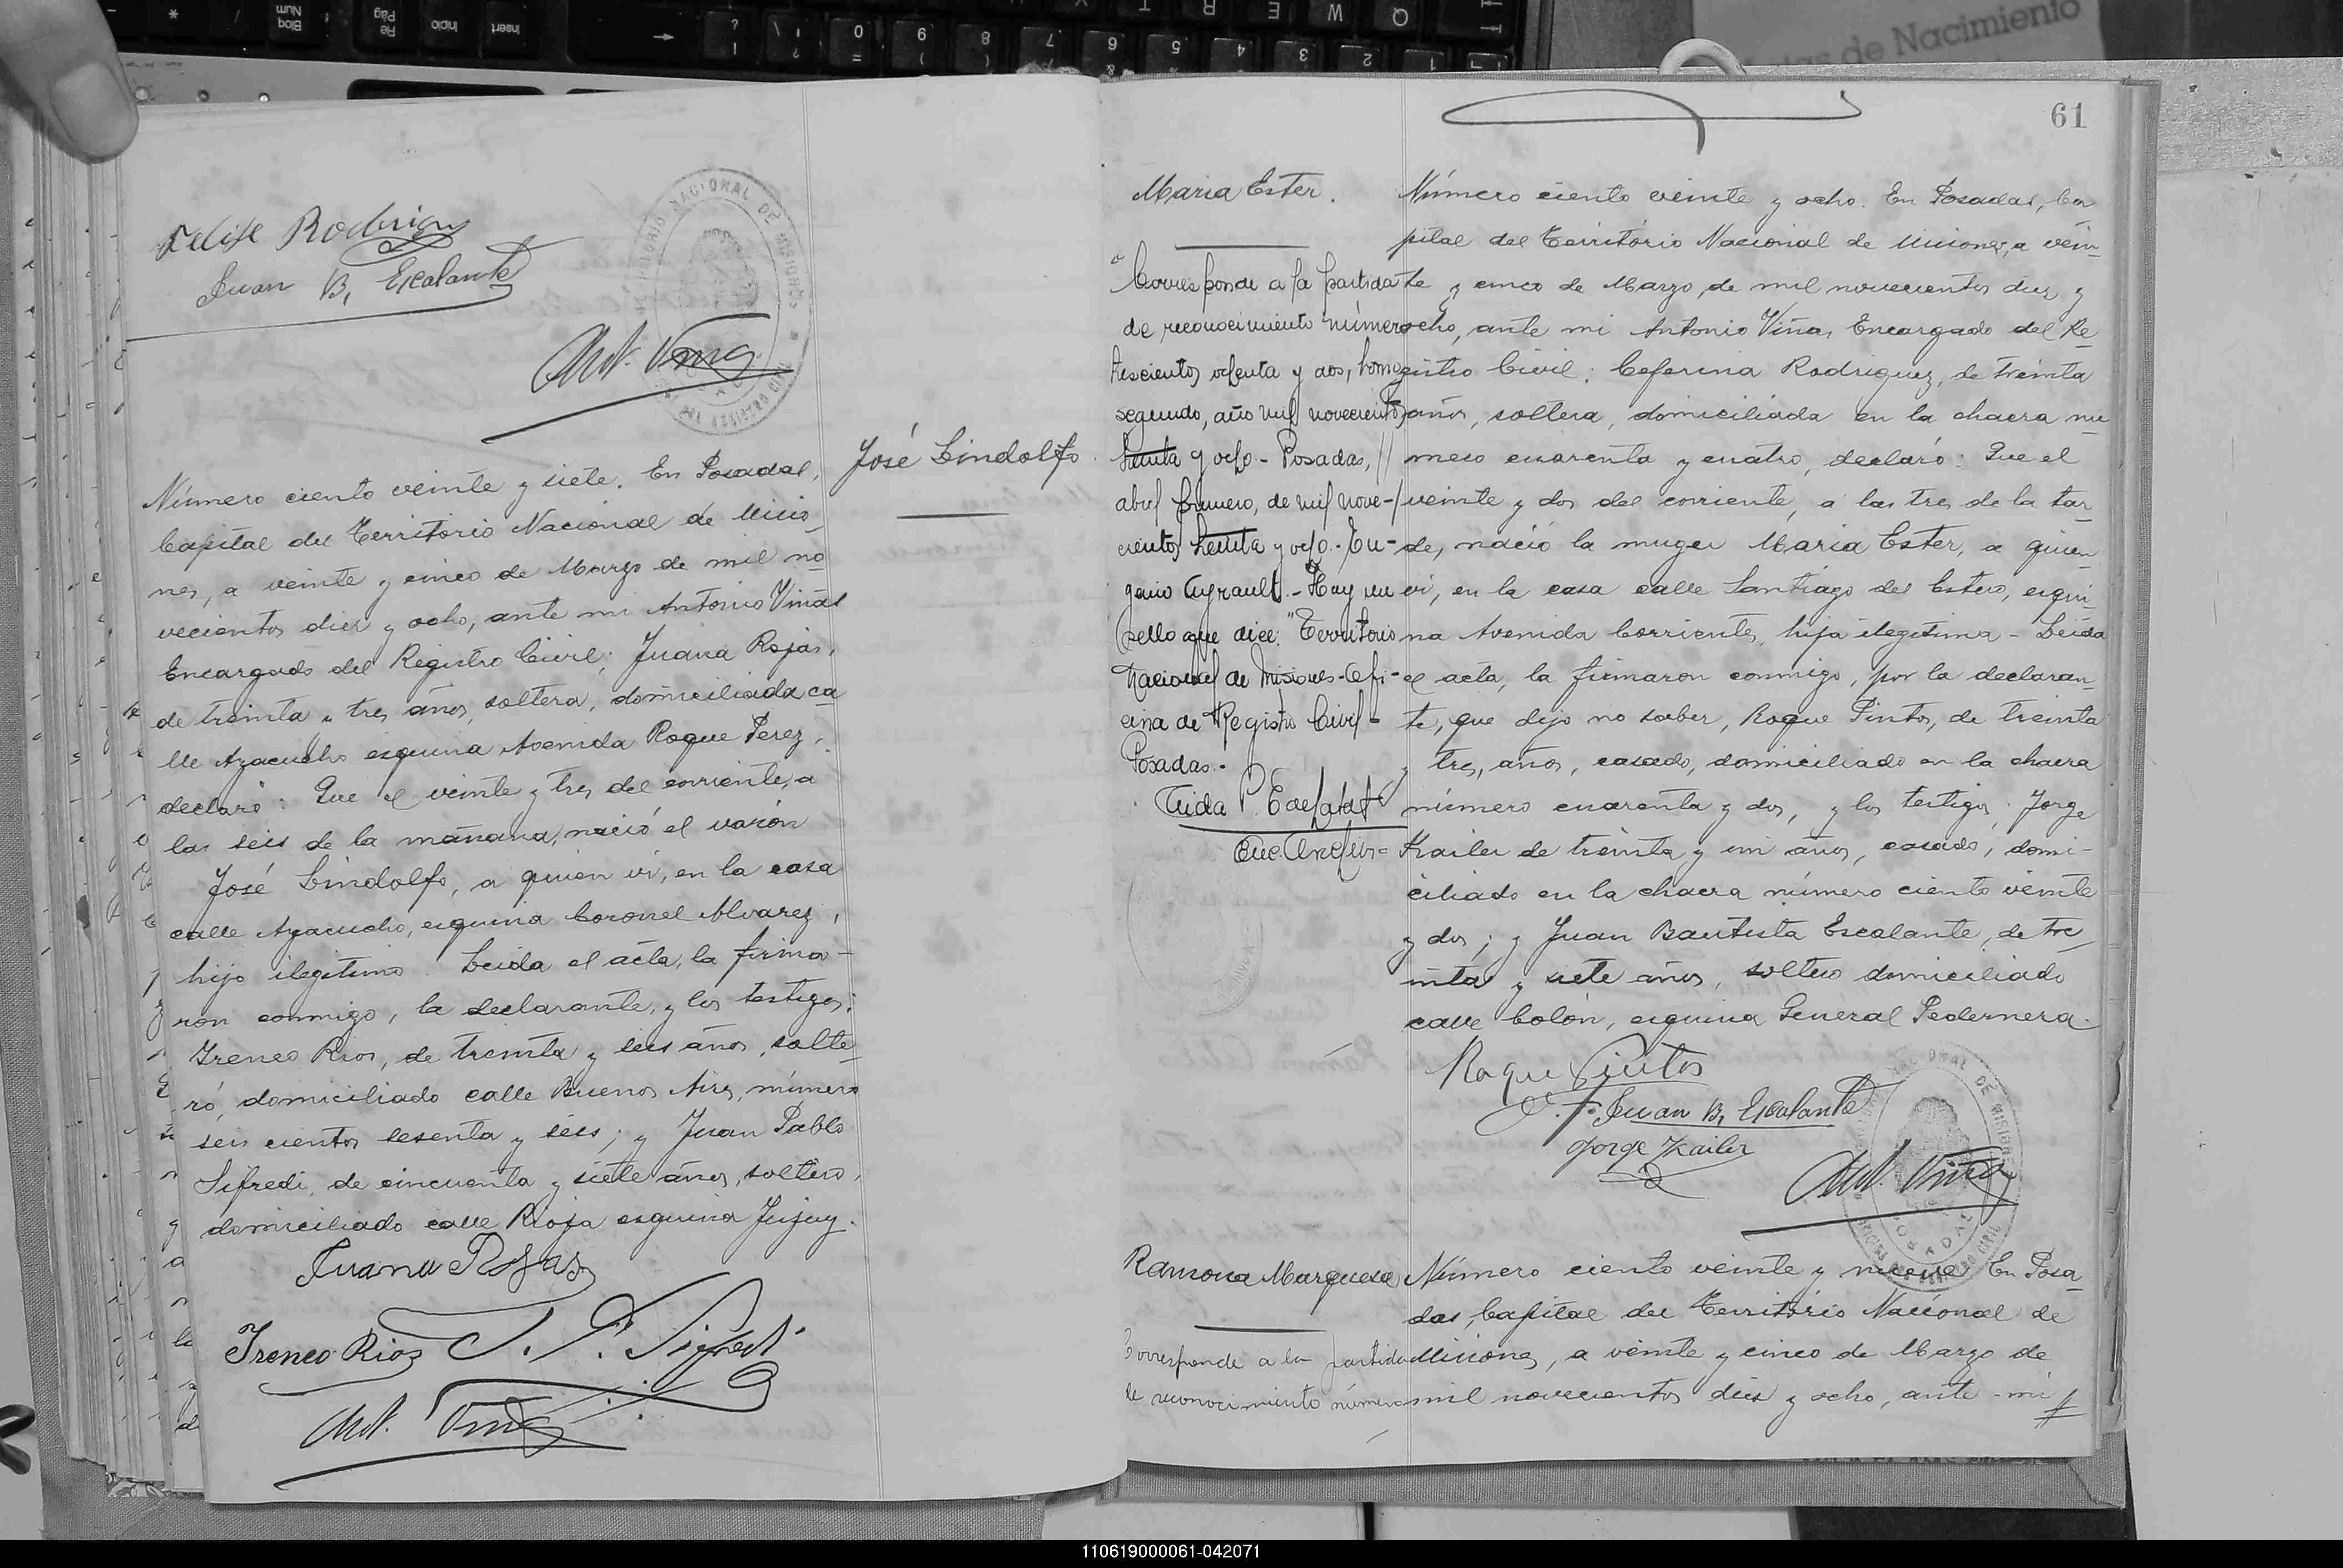 Felipe Rodrigu
Juan B. Escalante
Ant. Viñas
José Lindolfo.
Número ciento veinte y siete. En Posadas,
Capital del Territorio Nacional de Misio
nes, a veinte y cinco de Marzo de mil no
vecientos diez y ocho, ante mi Antonio Viñas
Encargado del Registro Civil; Juana Rojas,
de treinta y tres años, soltera, domiciliada ca
lle Ayacucho esquina Avenida Roque Perez,
declaró: Que el veinte y tres del corriente, a
las seis de la mañana, nació el varón
José Lindolfo, a quien vi, en la casa
calle Ayacucho, esquina Coronel Alvarez,
hijo ilegitimo. Leida el acta, la firma-
ron conmigo, la declarante, y los testigos:
Ireneo Rios, de treinta y seis años, solte
ro, domiciliado calle Buenos Aires, número
seis cientos sesenta y seis; y Juan Pablo
Sifredi, de cincuenta y siete años, soltero,
domiciliado calle Rioja esquina Jujuy.
Juana Rojas
Ireneo Rios J. P. Sifredi
Ant. Viñas
61
Maria Ester.
"Corresponde a la partida
de reconocimiento número
trescientos ochenta y dos, tomo
segundo, año mil novecientos
treinta y ocho - Posadas,
abril primero, de mil nove-
cientos treinta y ocho.- Eu-
genio Ayrault.- Hay un
sello que dice: "Territorio
Nacional de Misiones-Ofi-
cina de Registro Civil-
Posadas.-
Número ciento veinte y ocho. En Posadas, Ca
pital del Territorio Nacional de Misiones, a vein
te y cinco de Marzo de mil novecientos diez y
ocho, ante mi Antonio Viñas, Encargado del Re
gistro Civil; Ceferina Rodriguez, de treinta
años, soltera, domiciliada en la chacra nu
mero cuarenta y cuatro, declaró: Que el
veinte y dos del corriente, a las tres de la tar
de, nació la muger Maria Ester, a quien
vi, en la casa calle Santiago del Estero, esqui
na Avenida Corrientes, hija ilegitima - Leida
el acta, la firmaron conmigo, por la declaran
te, que dijo no saber, Roque Pintos, de treinta
y tres, años, casado, domiciliado en la chacra
número cuarenta y dos, y los testigos: Jorge
Kailer de treinta y un años, casado, domi-
ciliado en la chacra número ciento veinte
y dos; y Juan Bautista Escalante, de tre
inta y siete años, soltero domiciliado
calle Colón, esquina General Pedernera.
Roque Pintos
Juan B. Escalante
Jorge Kailer
Ant. Viñas
Ramona Marquesa
Corresponde a la partida
de reconocimiento número
Número ciento veinte y nueve En Posa
das, Capital del Territorio Nacional de
Misiones, a veinte y cinco de Marzo de
mil novecientos diez y ocho, ante mi
110619000061-042071